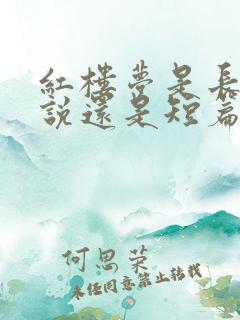 紅樓夢是長
說還是短篇
何思榮
未经同意禁止转载